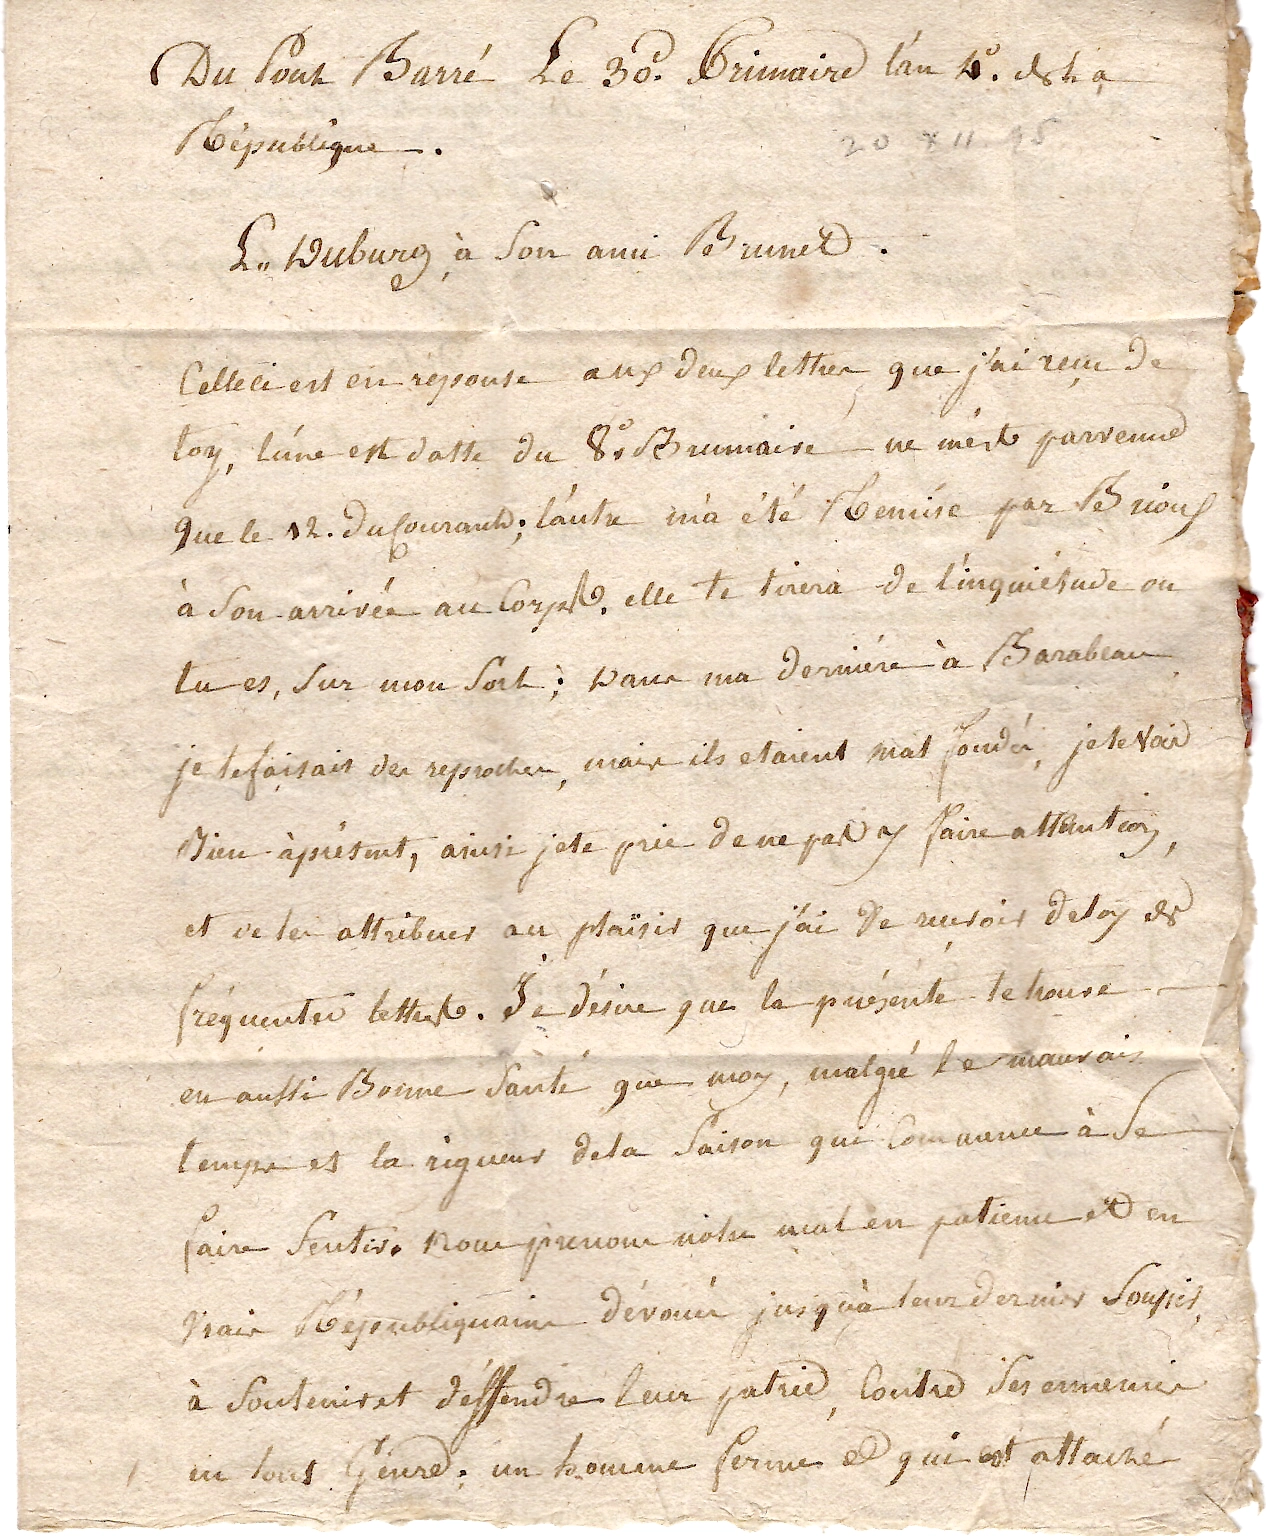 Du Pont Barré Le 30e. Frimaire l'an 4e. de La
République.
20 XII 95
L. Duburg à Son ami Brunet.
Celleci est en réponse aux deux lettres que j'ai reçu de
toy, l'une est datte du 8e. Brumaire ne m'est parvenue
que le 12. du Courant; l'autre m'a été Remise par Brioux
à Son arrivée au Corps. elle te tirera de l'inquiétude ou
tu es, Sur mon Sort; Dans ma derniére à Barabeau
je te faisais des reproches, mais ils etaient mal fondés, je le Vois
Bien àprésent, ainsi je te prie de ne pas y faire attention,
et de les attribuer au plaisir que j'ai De reçevoir de toy des
fréquentes lettres. Je désire que la présente te trouve
en aussi Bonne Santé que moy, malgré le mauvais
temps et la rigueur de la Saison qui Commence à Se
faire Sentir. Nous prenons notre mal en patience et en
Vrais Républiquains dévoués jusqu'à leur dernier Soupir,
à Soutenir et déffendre leur patrie, Contre Ses ennemis
en tout Genre. un homme ferme et qui est attaché